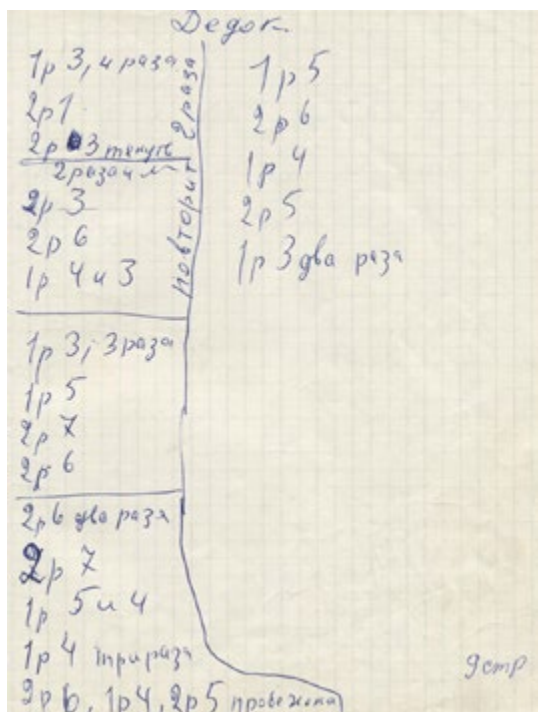 Дедок
1р 3, 4 раза
2р 1
2р 3 тянуть
2 раза и
2р 3
2р 6
1р 4 и 3
повторит 2 раза
1р 3, 3 раза
1р 5
2р 7
2р 6
2р 6 два раза
2р 7
1р 5 и 4
1р 4 три раза
2р 6, 1р 4, 2р 5
1р 5
2р 6
1р 4
2р 5
1р 3 два раза
9 стр